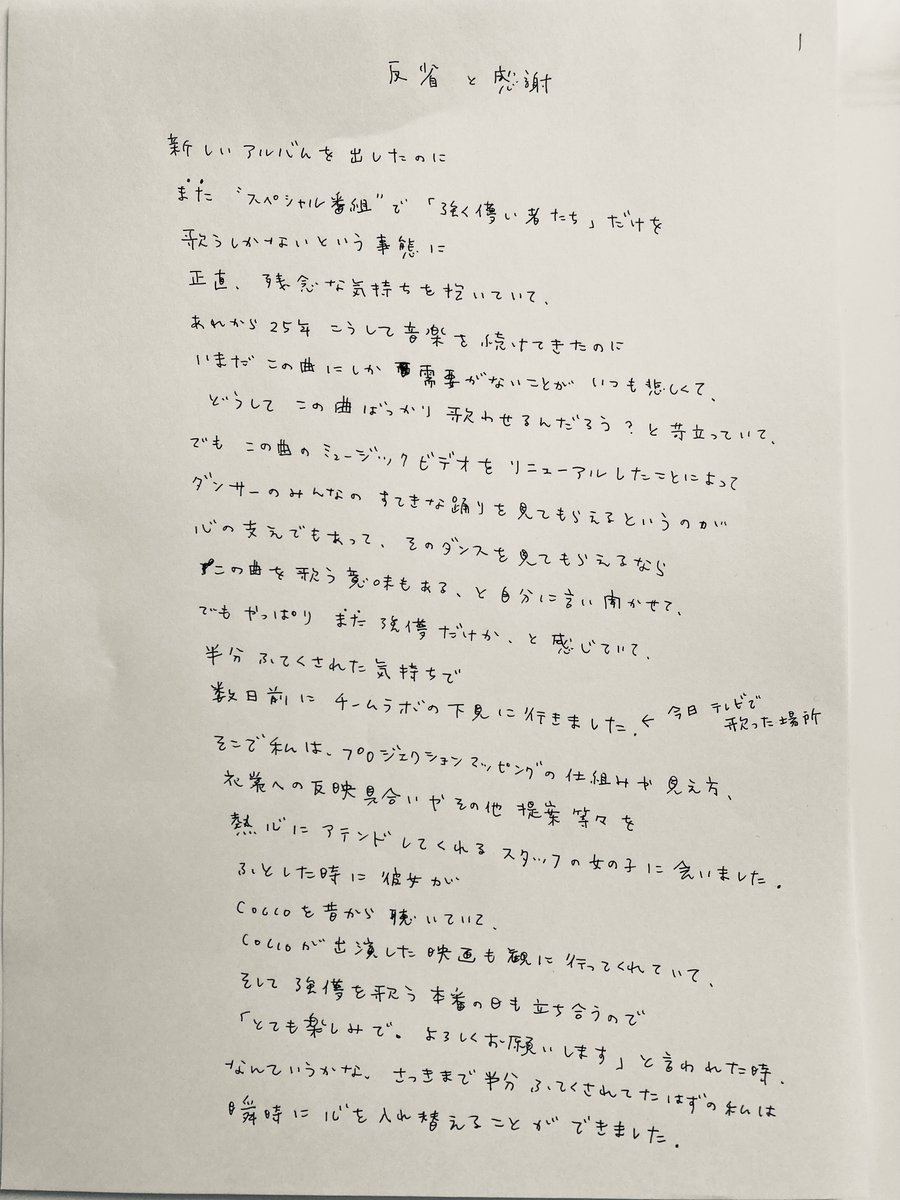 1
反省と感謝
新しいアルバムを出したのに
また“スペシャル番組”で「強く儚い者たち」だけを
歌うしかないという事態に
正直、残念な気持ちを抱いていて、
あれから25年 こうして音楽を続けてきたのに
いまだ この曲にしか 需要がないことが いつも悲しくて、
どうして この曲ばっかり 歌わせるんだろう？と苛立っていて、
でも この曲のミュージックビデオを リニューアルしたことによって
ダンサーのみんなの すてきな踊りを見てもらえるというのが
心の支えでもあって、そのダンスを見てもらえるなら
この曲を歌う意味もある、と自分に言い聞かせて、
でもやっぱり また 強儚だけか、と感じていて、
半分 ふてくされた気持ちで
数日前に チームラボの下見に行きました。← 今日 テレビで
歌った場所
そこで私は、プロジェクションマッピングの仕組みや見え方、
衣裳への反映具合いやその他 提案等々を
熱心にアテンドしてくれる スタッフの女の子に会いました。
ふとした時に彼女が
Coccoを昔から聴いていて、
Coccoが出演した映画も観に行ってくれていて、
そして強儚を歌う本番の日も立ち合うので
「とても楽しみで。よろしくお願いします」と言われた時、
なんていうかな、さっきまで半分 ふてくされてたはずの私は
瞬時に心を入れ替えることができました。